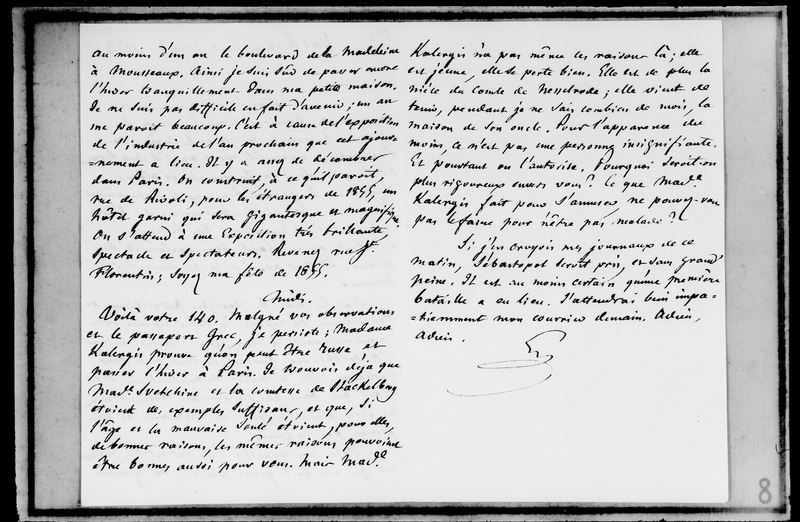 au moins d'un an le boulevard de la Madeleine
à Mousseaux. Ainsi je suis sûr de passer encore
l'hiver tranquillement dans ma petite maison.
Je ne suis pas difficile en fait d'avenir ; un an
me paroit beaucoup. C'est à cause de l'exposition
de l'industrie de l'an prochain que cet ajour=
=nement a lieu. Il y a assez de décombres
dans Paris. On construit, à ce qu'il paroit,
rue de Rivoli, pour les étrangers de 1855, un
hôtel garni qui sera gigantesque et magnifique.
On s'attend à une Exposition très brillante,
spectacle et spectateurs. Revenez rue St
Florentin ; soyez ma fête de 1855.
Midi.
Voilà votre 140. Malgré vos observations
et le passeport Grec, je persiste ; Madame
Kalergis prouve qu'on peut être Russe et
passer l'hiver à Paris. Je trouvois déjà que
Made Svetchine et la comtesse de Stackelberg
étoient des exemples suffisans, et que, si
l'âge et la mauvaise santé étoient, pour elles,
de bonnes raisons, les mêmes raisons pouvoient
être bonnes aussi pour vous. Mais Made
Kalergis n'a pas même ces raisons là ; elle
est jeune, elle se porte bien. Elle est de plus la
nièce du Comte de Nesselrode ; elle vient de
tenir, pendant je ne sais combien de mois, la
maison de son oncle. Pour l'apparence du
moins, ce n'est pas une personne insignifiante.
Et pourtant on l'autorise. Pourquoi seroit-on
plus rigoureux envers vous ? Ce que Made
Kalergis fait pour s'amuser ne pouvez-vous
pas le faire pour n'être pas malade ?
Si j'en croyois mes journaux de ce
matin, Sébastopol seroit pris, et sans grand'
peine. Il est au moins certain qu'une première
bataille a eu lieu. J'attendrai bien impa=
=tiemment mon courrier demain. Adieu,
Adieu.
8